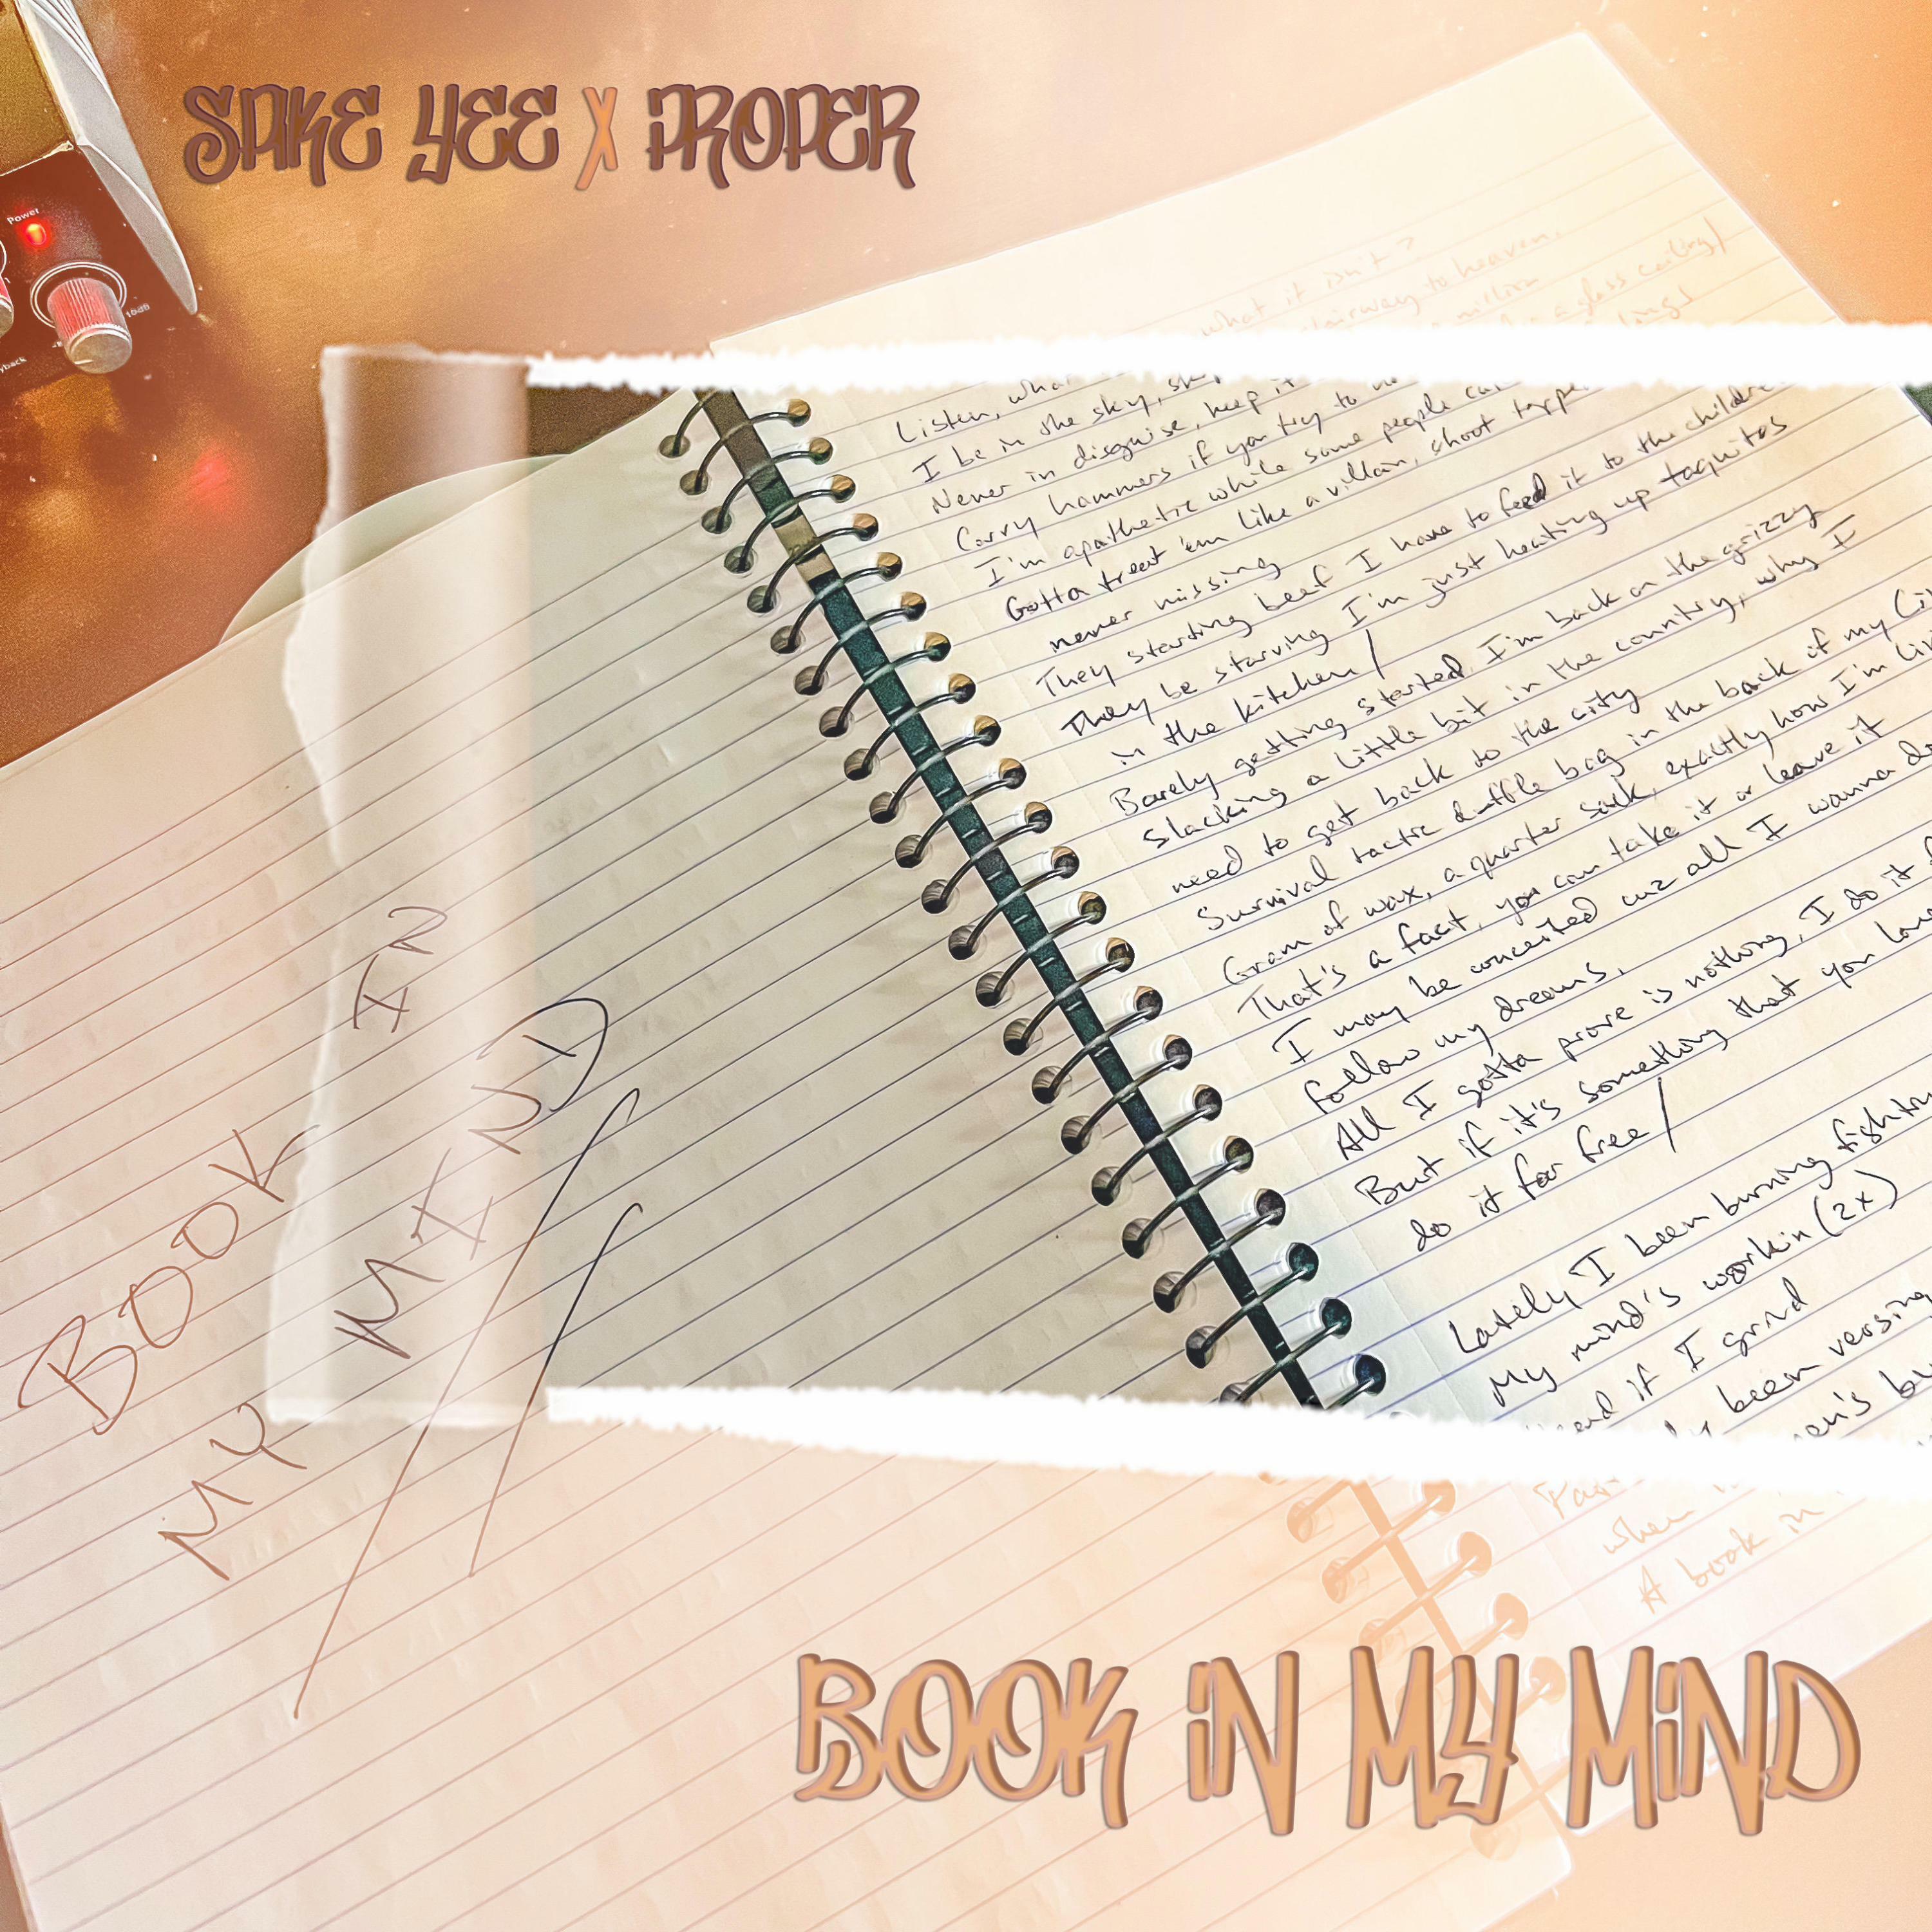 SAKE YEE X iPROPER
Power
10dB
what it isn't?
stairway to heaven.
million
a glass ceiling/
Listen, what
I be in the sky,
Never in disguise, keep it
Carry hammers if you try to
I'm apathetic while some people
Gotta treat 'em like a villain, shoot
never missing
They starting beef I have to feed it to the children
They be starving I'm just heating up taquitos
in the kitchen/
Barely getting started I'm back on the grizzy
Slacking a little bit in the country, why I
need to get back to the city
Survival tactic duffle bag in the back of my
Gram of wax, a quarter sack, exactly how I'm
That's a fact, you can take it or leave it
I may be conceited cuz all I wanna do
follow my dreams,
All I gotta prove is nothing, I do it
But if it's something that you love
do it for free/
Lately I been burning
My mind's workin (2x)
if I grind
been versing
when
A book in
BOOK IN
MY MIND
BOOK iN MY MiND